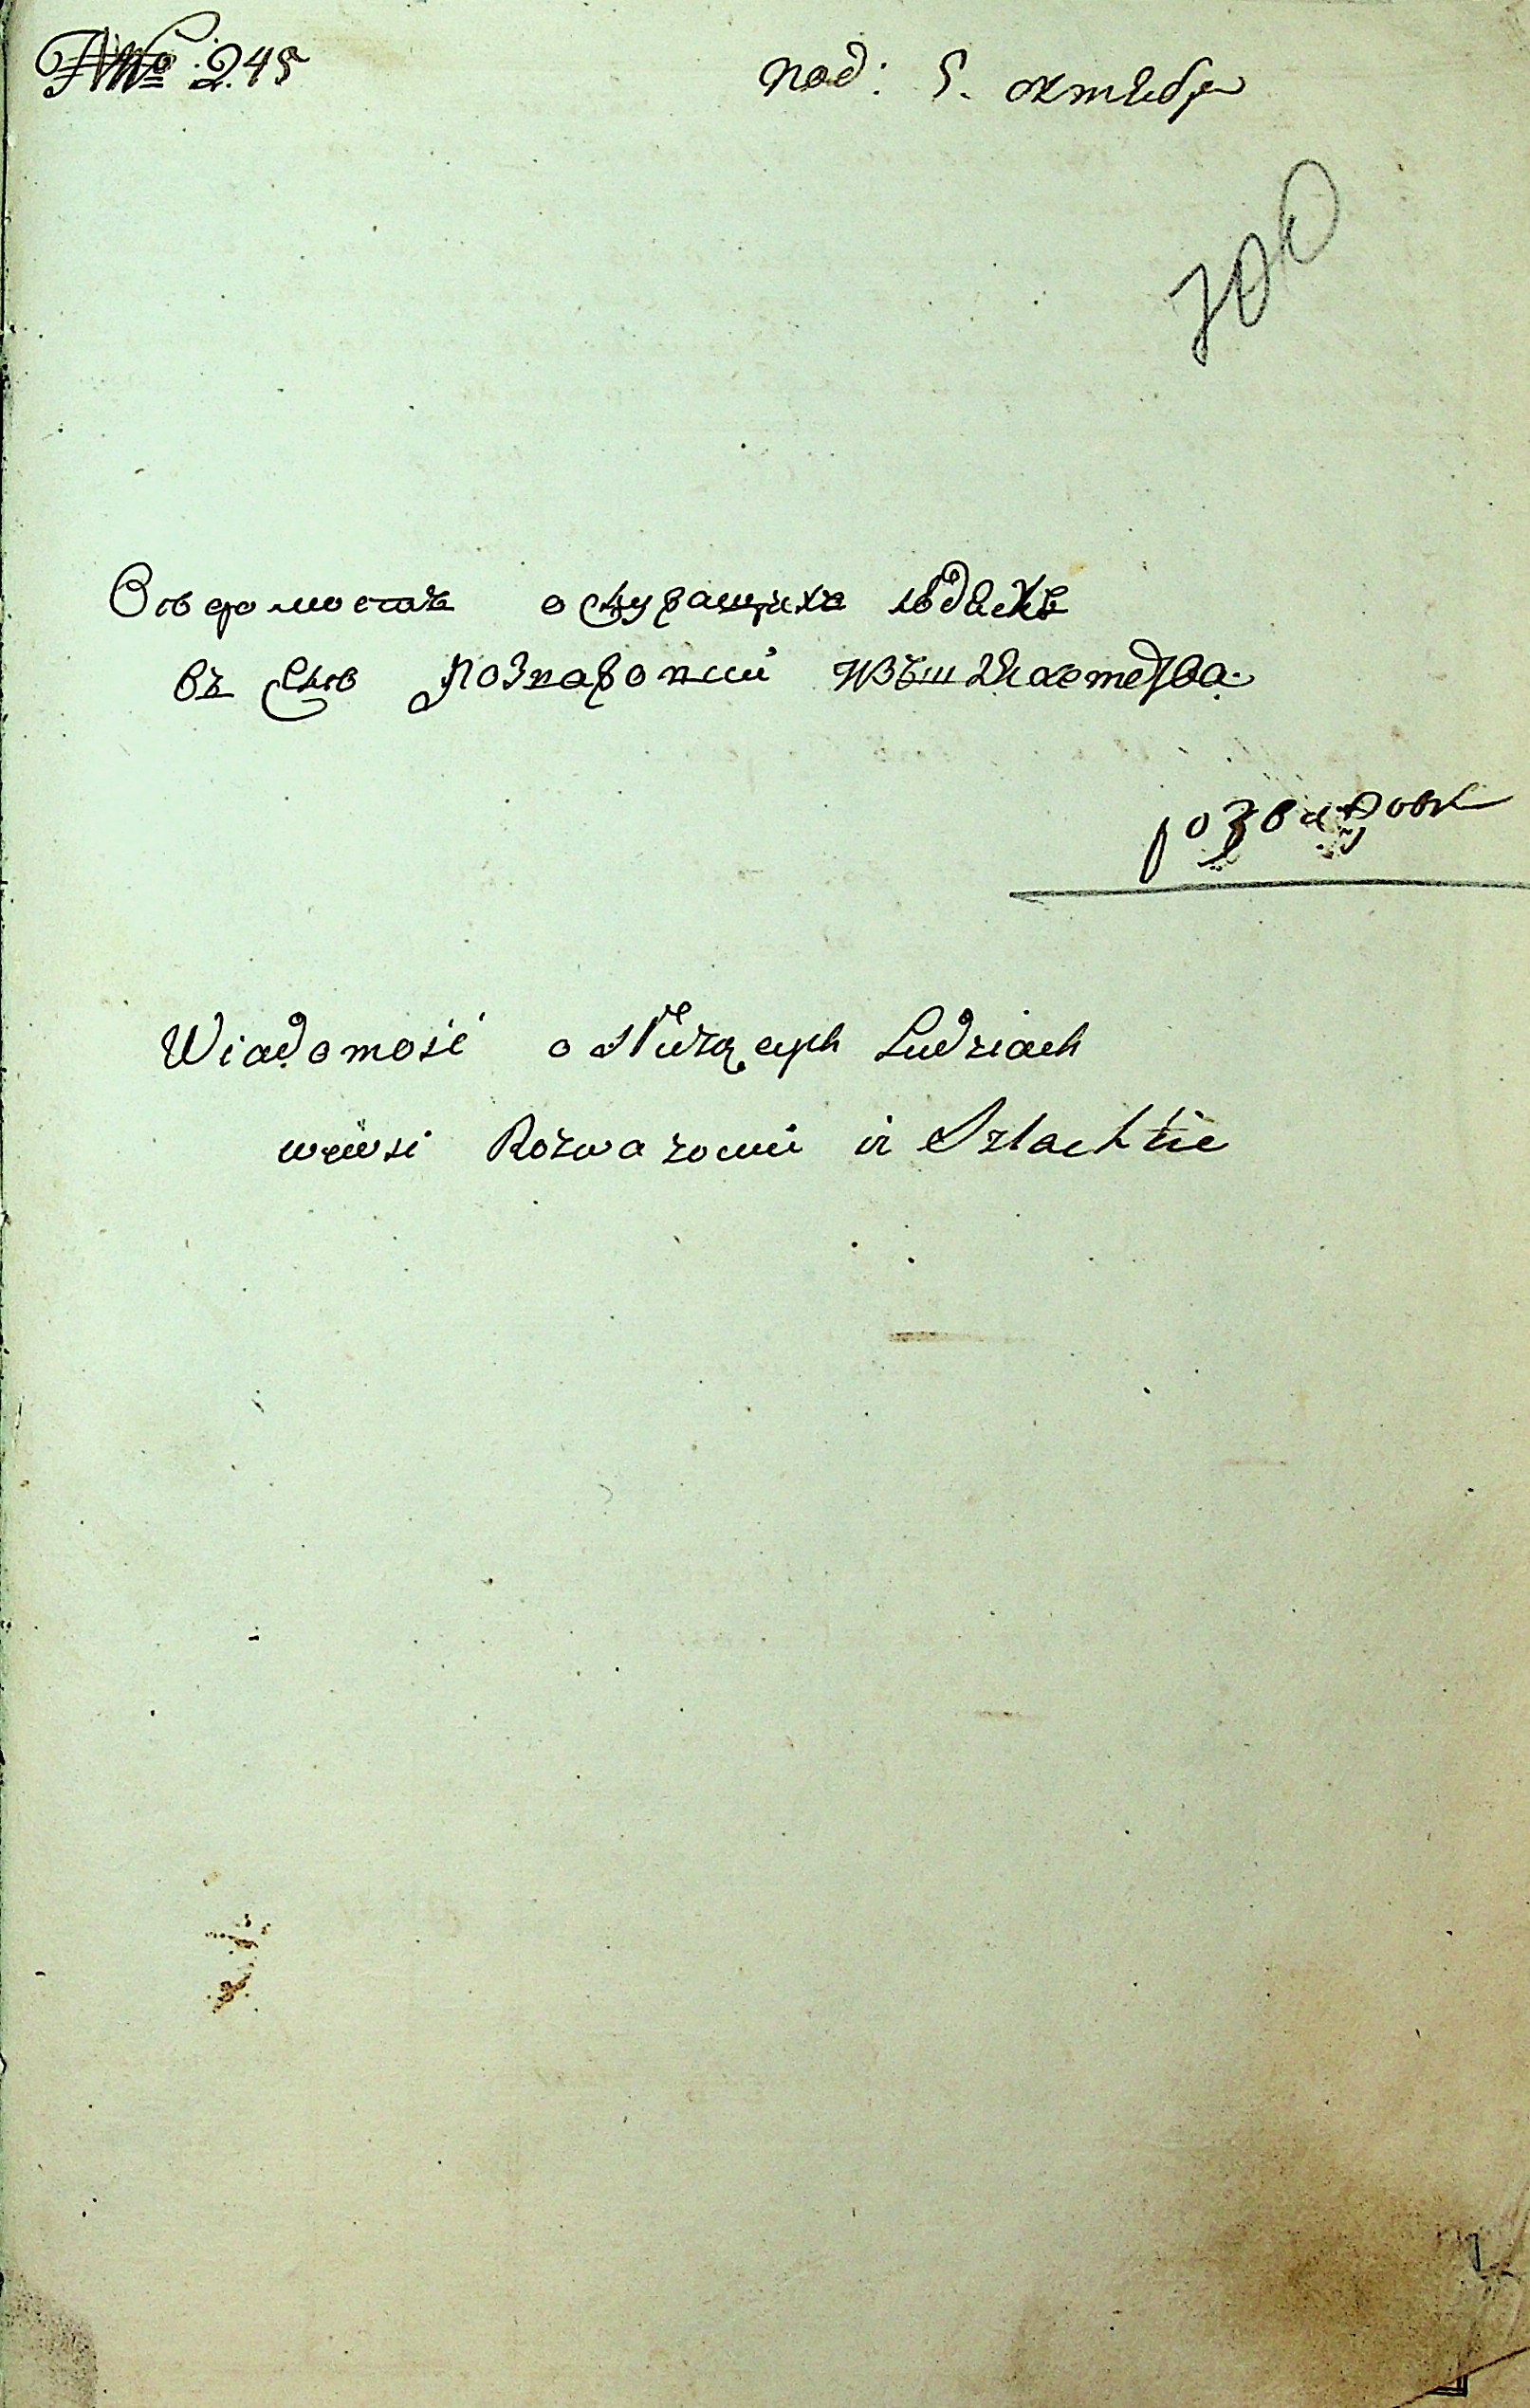 № 245
под: 5. октября
700
о служащихъ людяхъ
въ селѣ Розважовки изъ шляхетства.
розважовк
Wiadomość o Służących Ludziach
wewsi Rozwazowki i Szlachtie